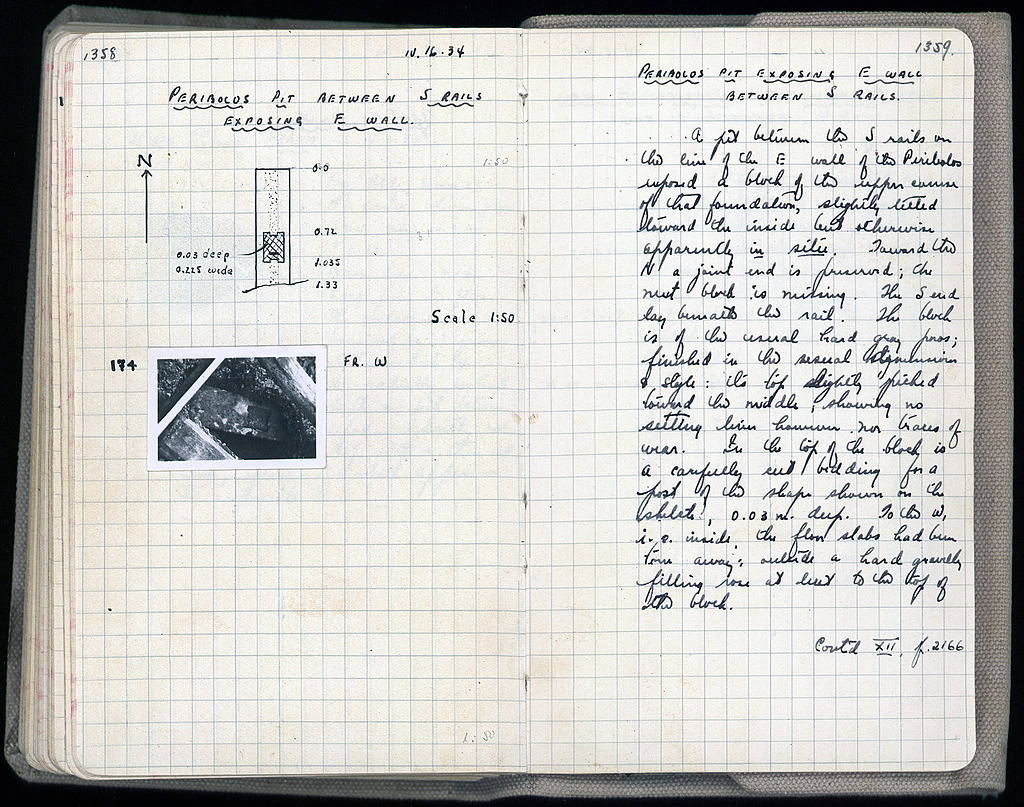 1358
IV. 16. 34
PERIBOLOS PIT BETWEEN S RAILS
EXPOSING E WALL.
1:50
N
0.0
0.72
0.03 deep
0.225 wide
1.035
1.33
Scale 1:50
174
FR. W
1:50
1359.
PERIBOLOS PIT EXPOSING E WALL
BETWEEN S RAILS.
A pit between the S rails on
the line of the E wall of the Peribolos
exposed a block of the upper course
of that foundation, slightly tilted
toward the inside but otherwise
apparently in situ. Toward the
N a joint end is preserved; the
next block is missing. The S end
lay beneath the rail. The block
is of the usual hard gray poros;
finished in the usual dimensions
& style: its top slightly picked
toward the middle, showing no
setting lines however nor traces of
wear. In the top of the block is
a carefully cut bedding for a
post of the shape shown on the
sketch, 0.03 m. deep. To the W,
i.e. inside, the floor slabs had been
torn away; outside a hard gravelly
filling rose at least to the top of
the block.
Cont'd XII, p. 2166